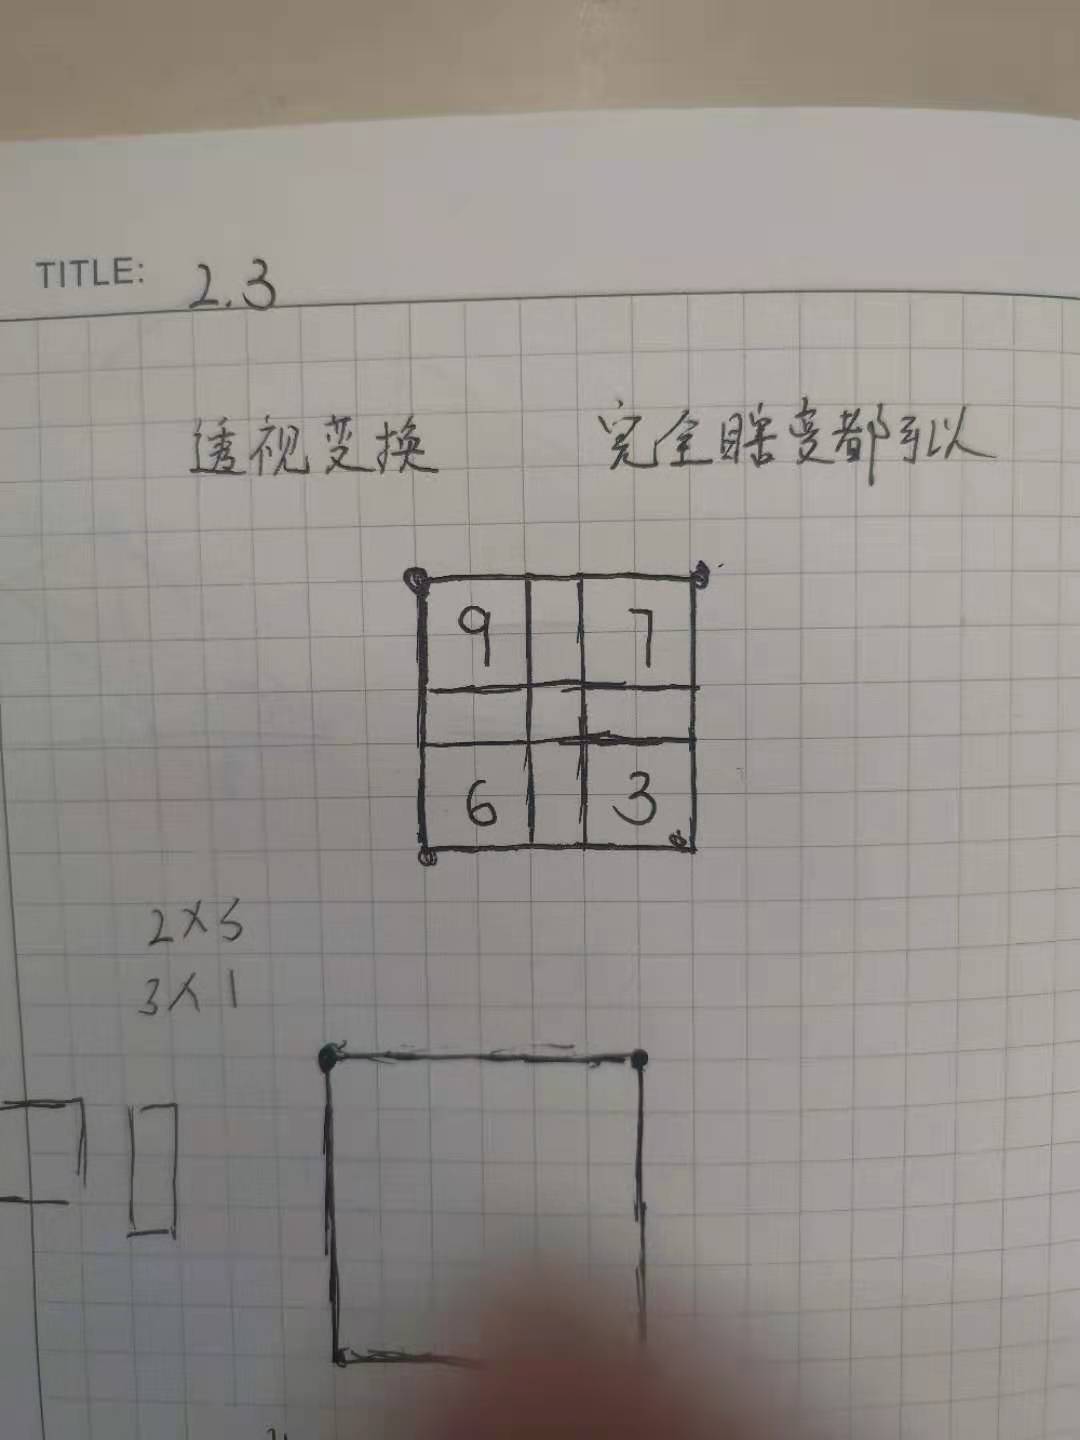 TITLE: 2.3
透视变换 完全瞎变都可以
9 7
6 3
2×5
3×1